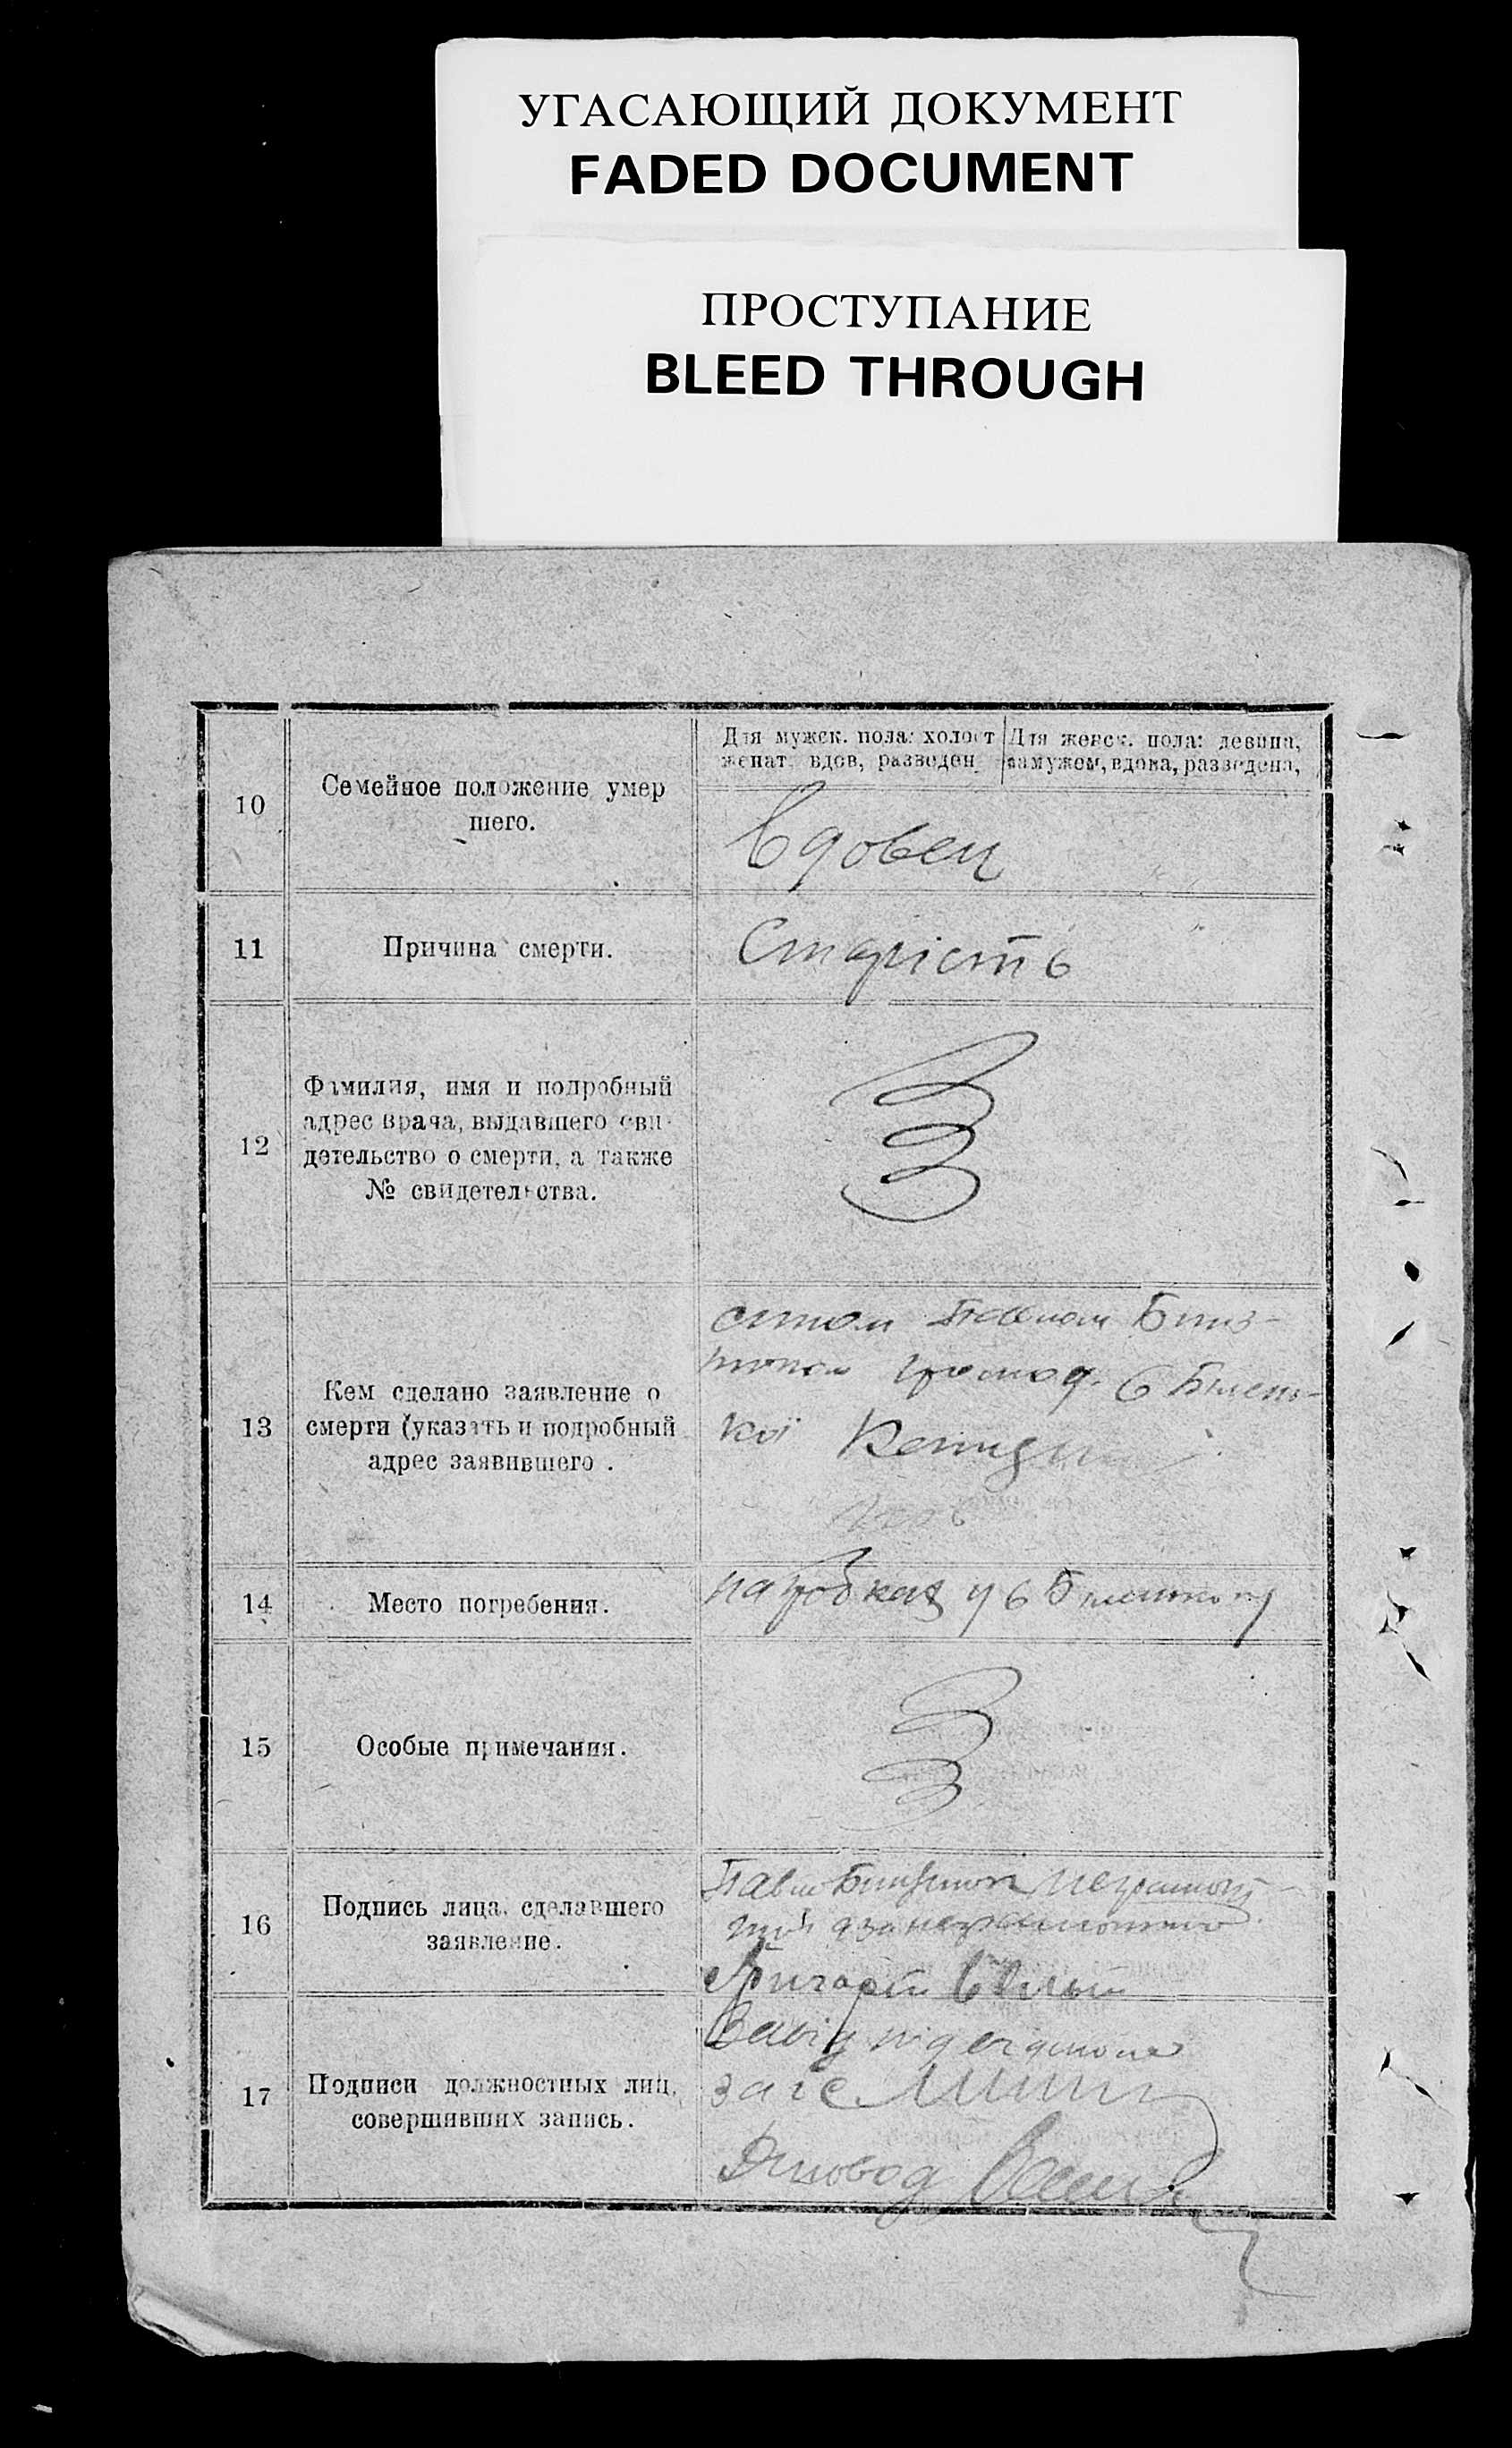 УГАСАЮЩИЙ ДОКУМЕНТ
FADED DOCUMENT
ПРОСТУПАНИЕ
BLEED THROUGH
Для мужск. пола: холост
женат, вдов, разведен
Для женск. пола: девица,
замужем, вдова, разведена,
10
Семейное положение умер
шего.
Вдовец
11
Причина смерти.
Старість
12
Фамилия, имя и подробный
адрес врача, выдавшего сви-
детельство о смерти, а также
№ свидетельства.
13
Кем сделано заявление о
смерти (указать и подробный
адрес заявившего .
громод. с
кої
14
Место погребения.
на гробках у с
15
Особые примечания.
16
Подпись лица, сделавшего
заявление.
Павло неграмот-
ний а за неграмотного
17
Подписи должностных лиц,
совершивших запись.
Завід
загс
Діловод